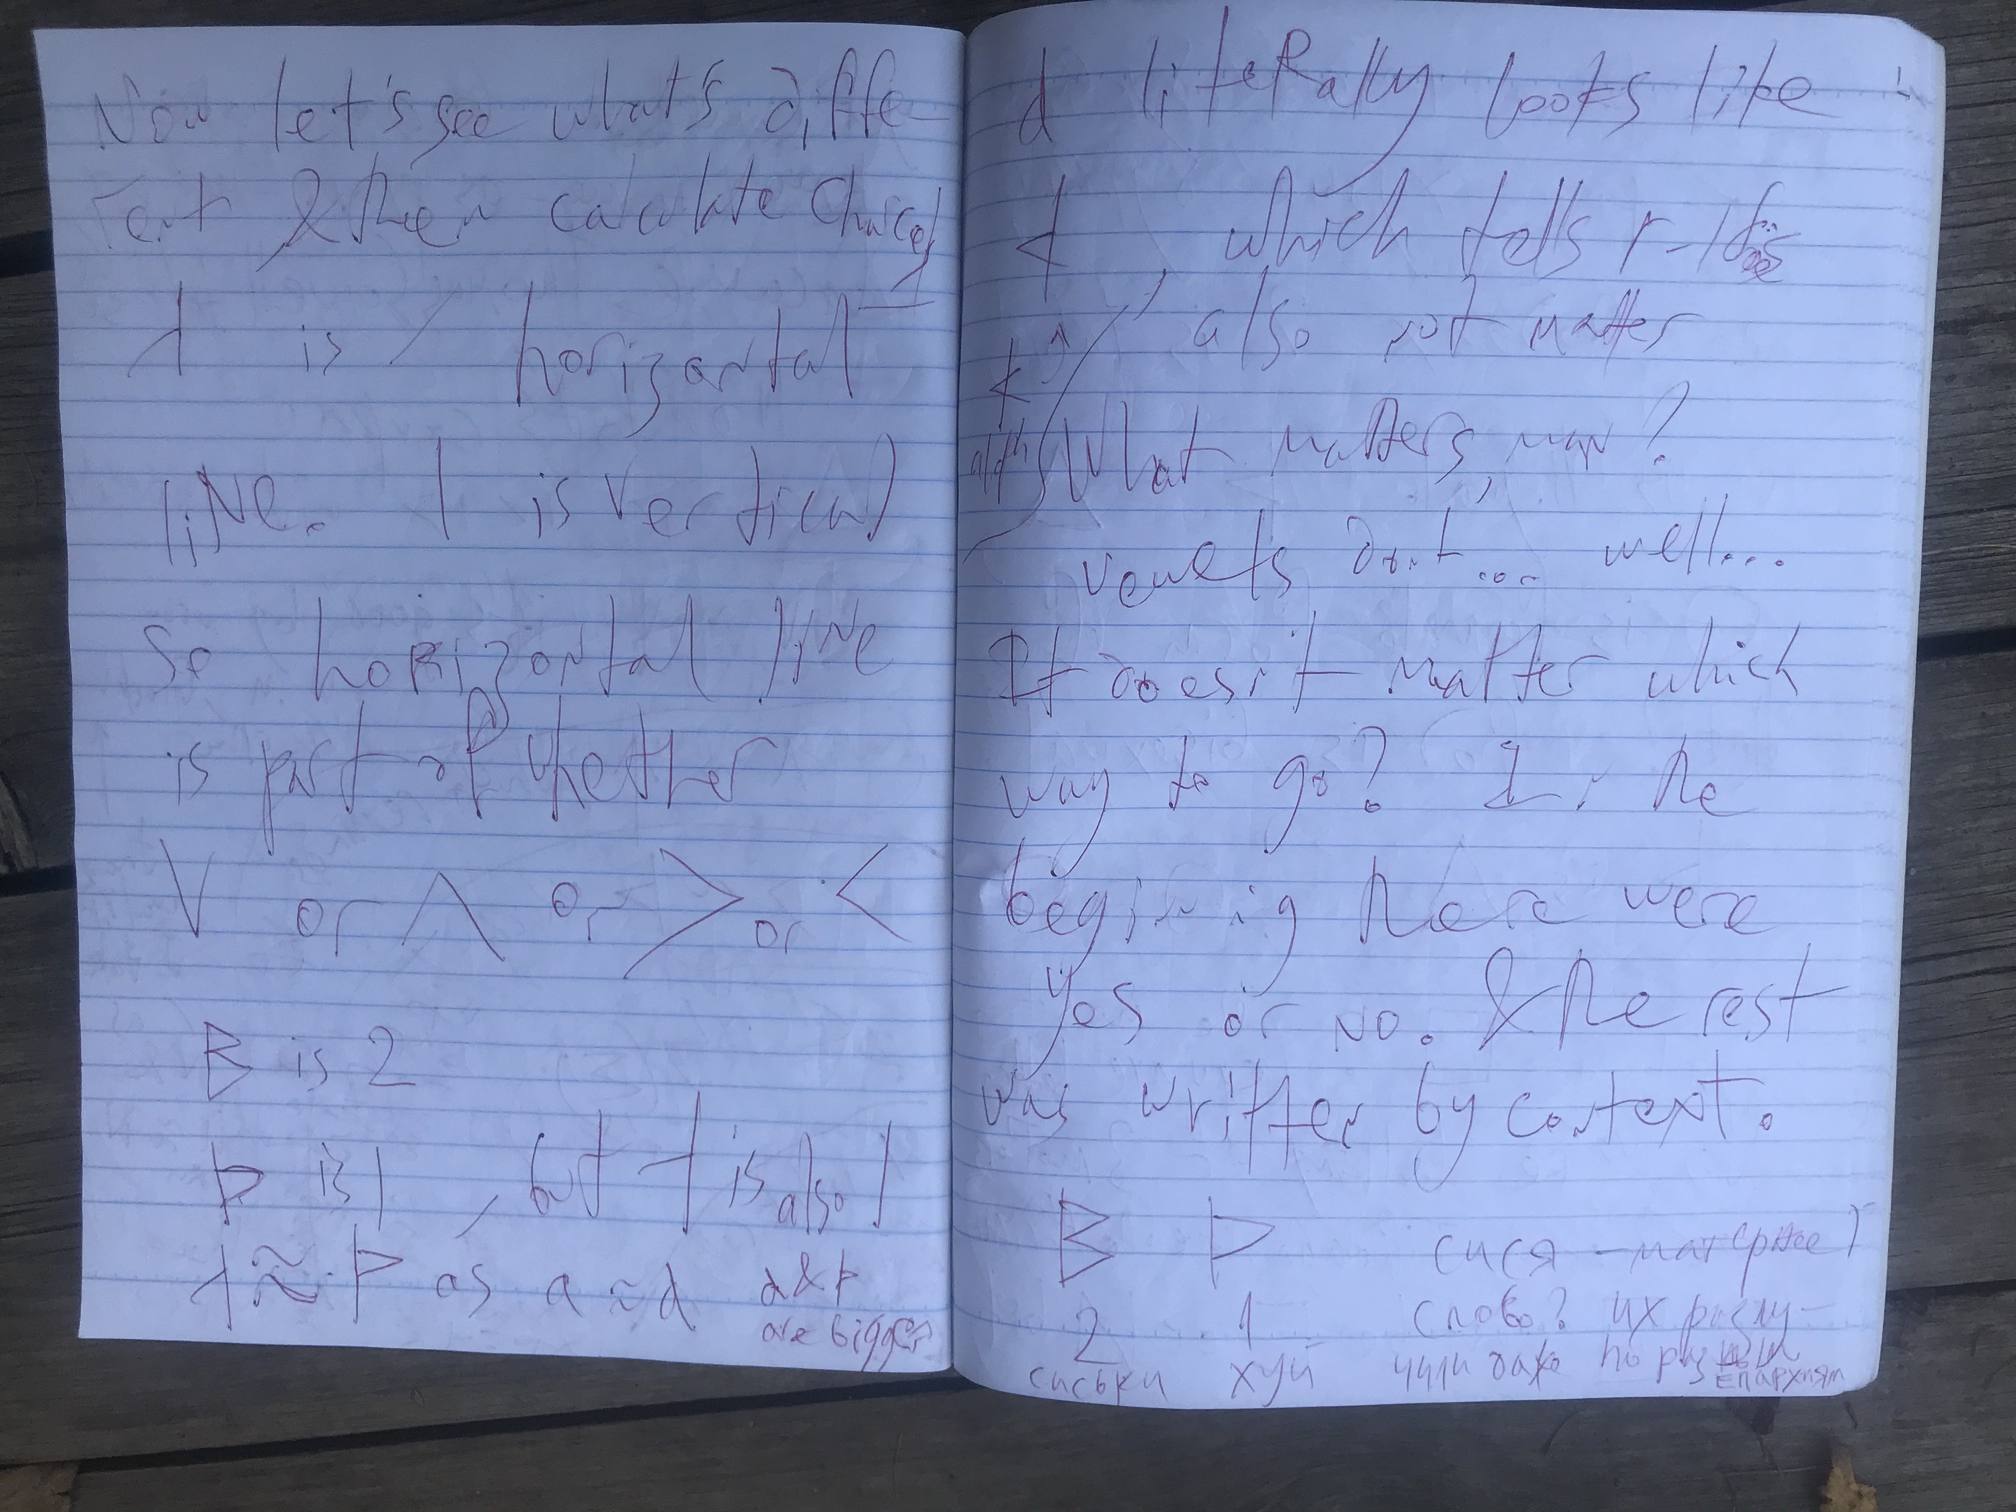 Now let's see what's diffe-
rent & then calculate Chances
is horizontal
line. | is vertical
So horizontal line
is part of whether
V or Λ or > or <
B is 2
Þ is 1, but ⊣ is also 1
≈ Þ as a ~ d d & Þ
are bigger
d literally looks like
, which tells r-l
also not matter
What matters, man?
vowels don't... well...
It doesn't matter which
way to go? In the
begining there were
yes or no. & the rest
was written by context.
B Þ сися –
2 1 слово? их разлу-
сиськи хуй чили даже по разным
епархиям